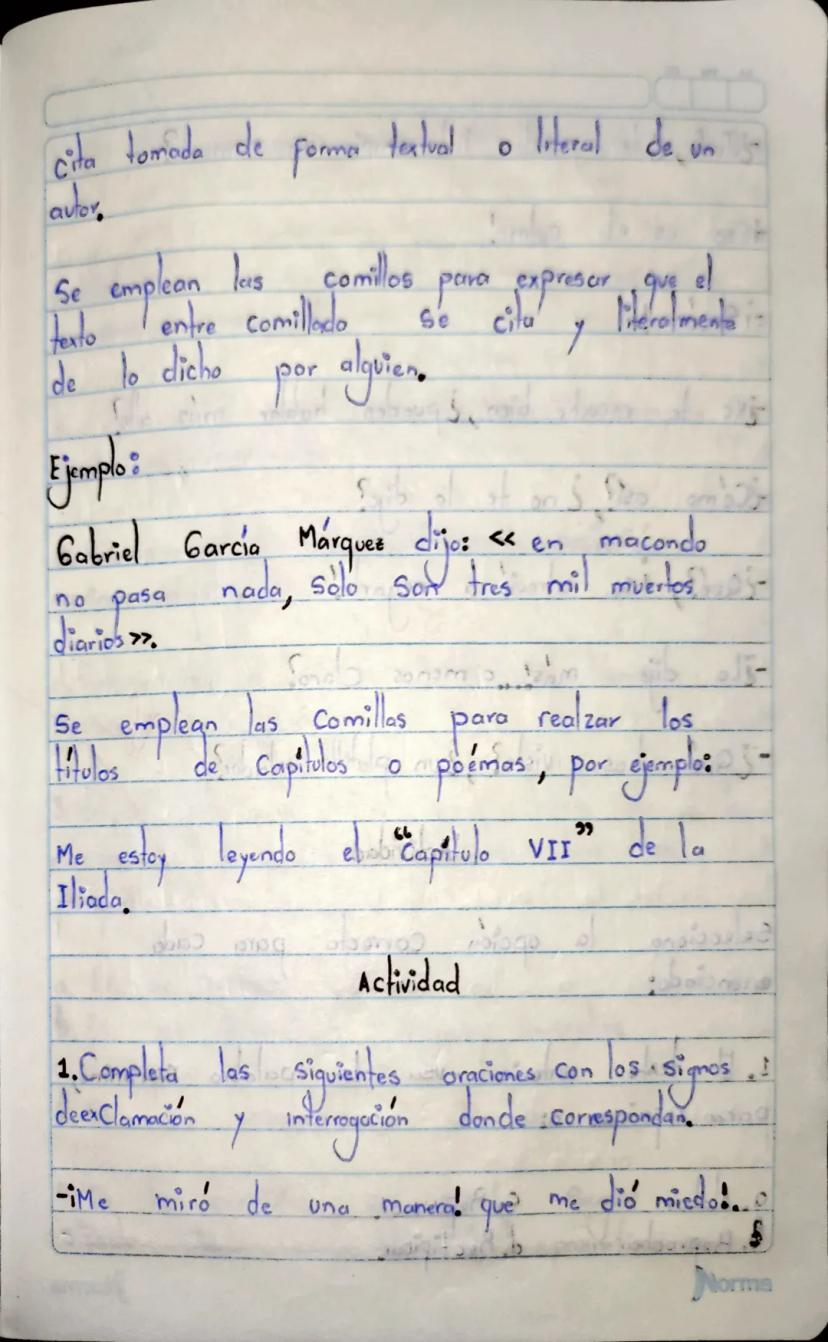 cita tomada de forma textual o literal de un
autor.
Se emplean las comillas para expresar que el
texto entre comillado se cita y literalmente
de lo dicho por alguien.
Ejemplo:
Gabriel García Márquez dijo: « en macondo
no pasa nada, sólo son tres mil muertos
diarios».
Se emplean las Comillas para realzar los
títulos de Capítulos o poémas, por ejemplo:
Me estoy leyendo el “Capítulo VII” de la
Iliada.
Actividad
1. Completa las siguientes oraciones con los signos
de exclamación y interrogación donde correspondan.
-¡Me miró de una manera! que me dió miedo!..
5
Norma